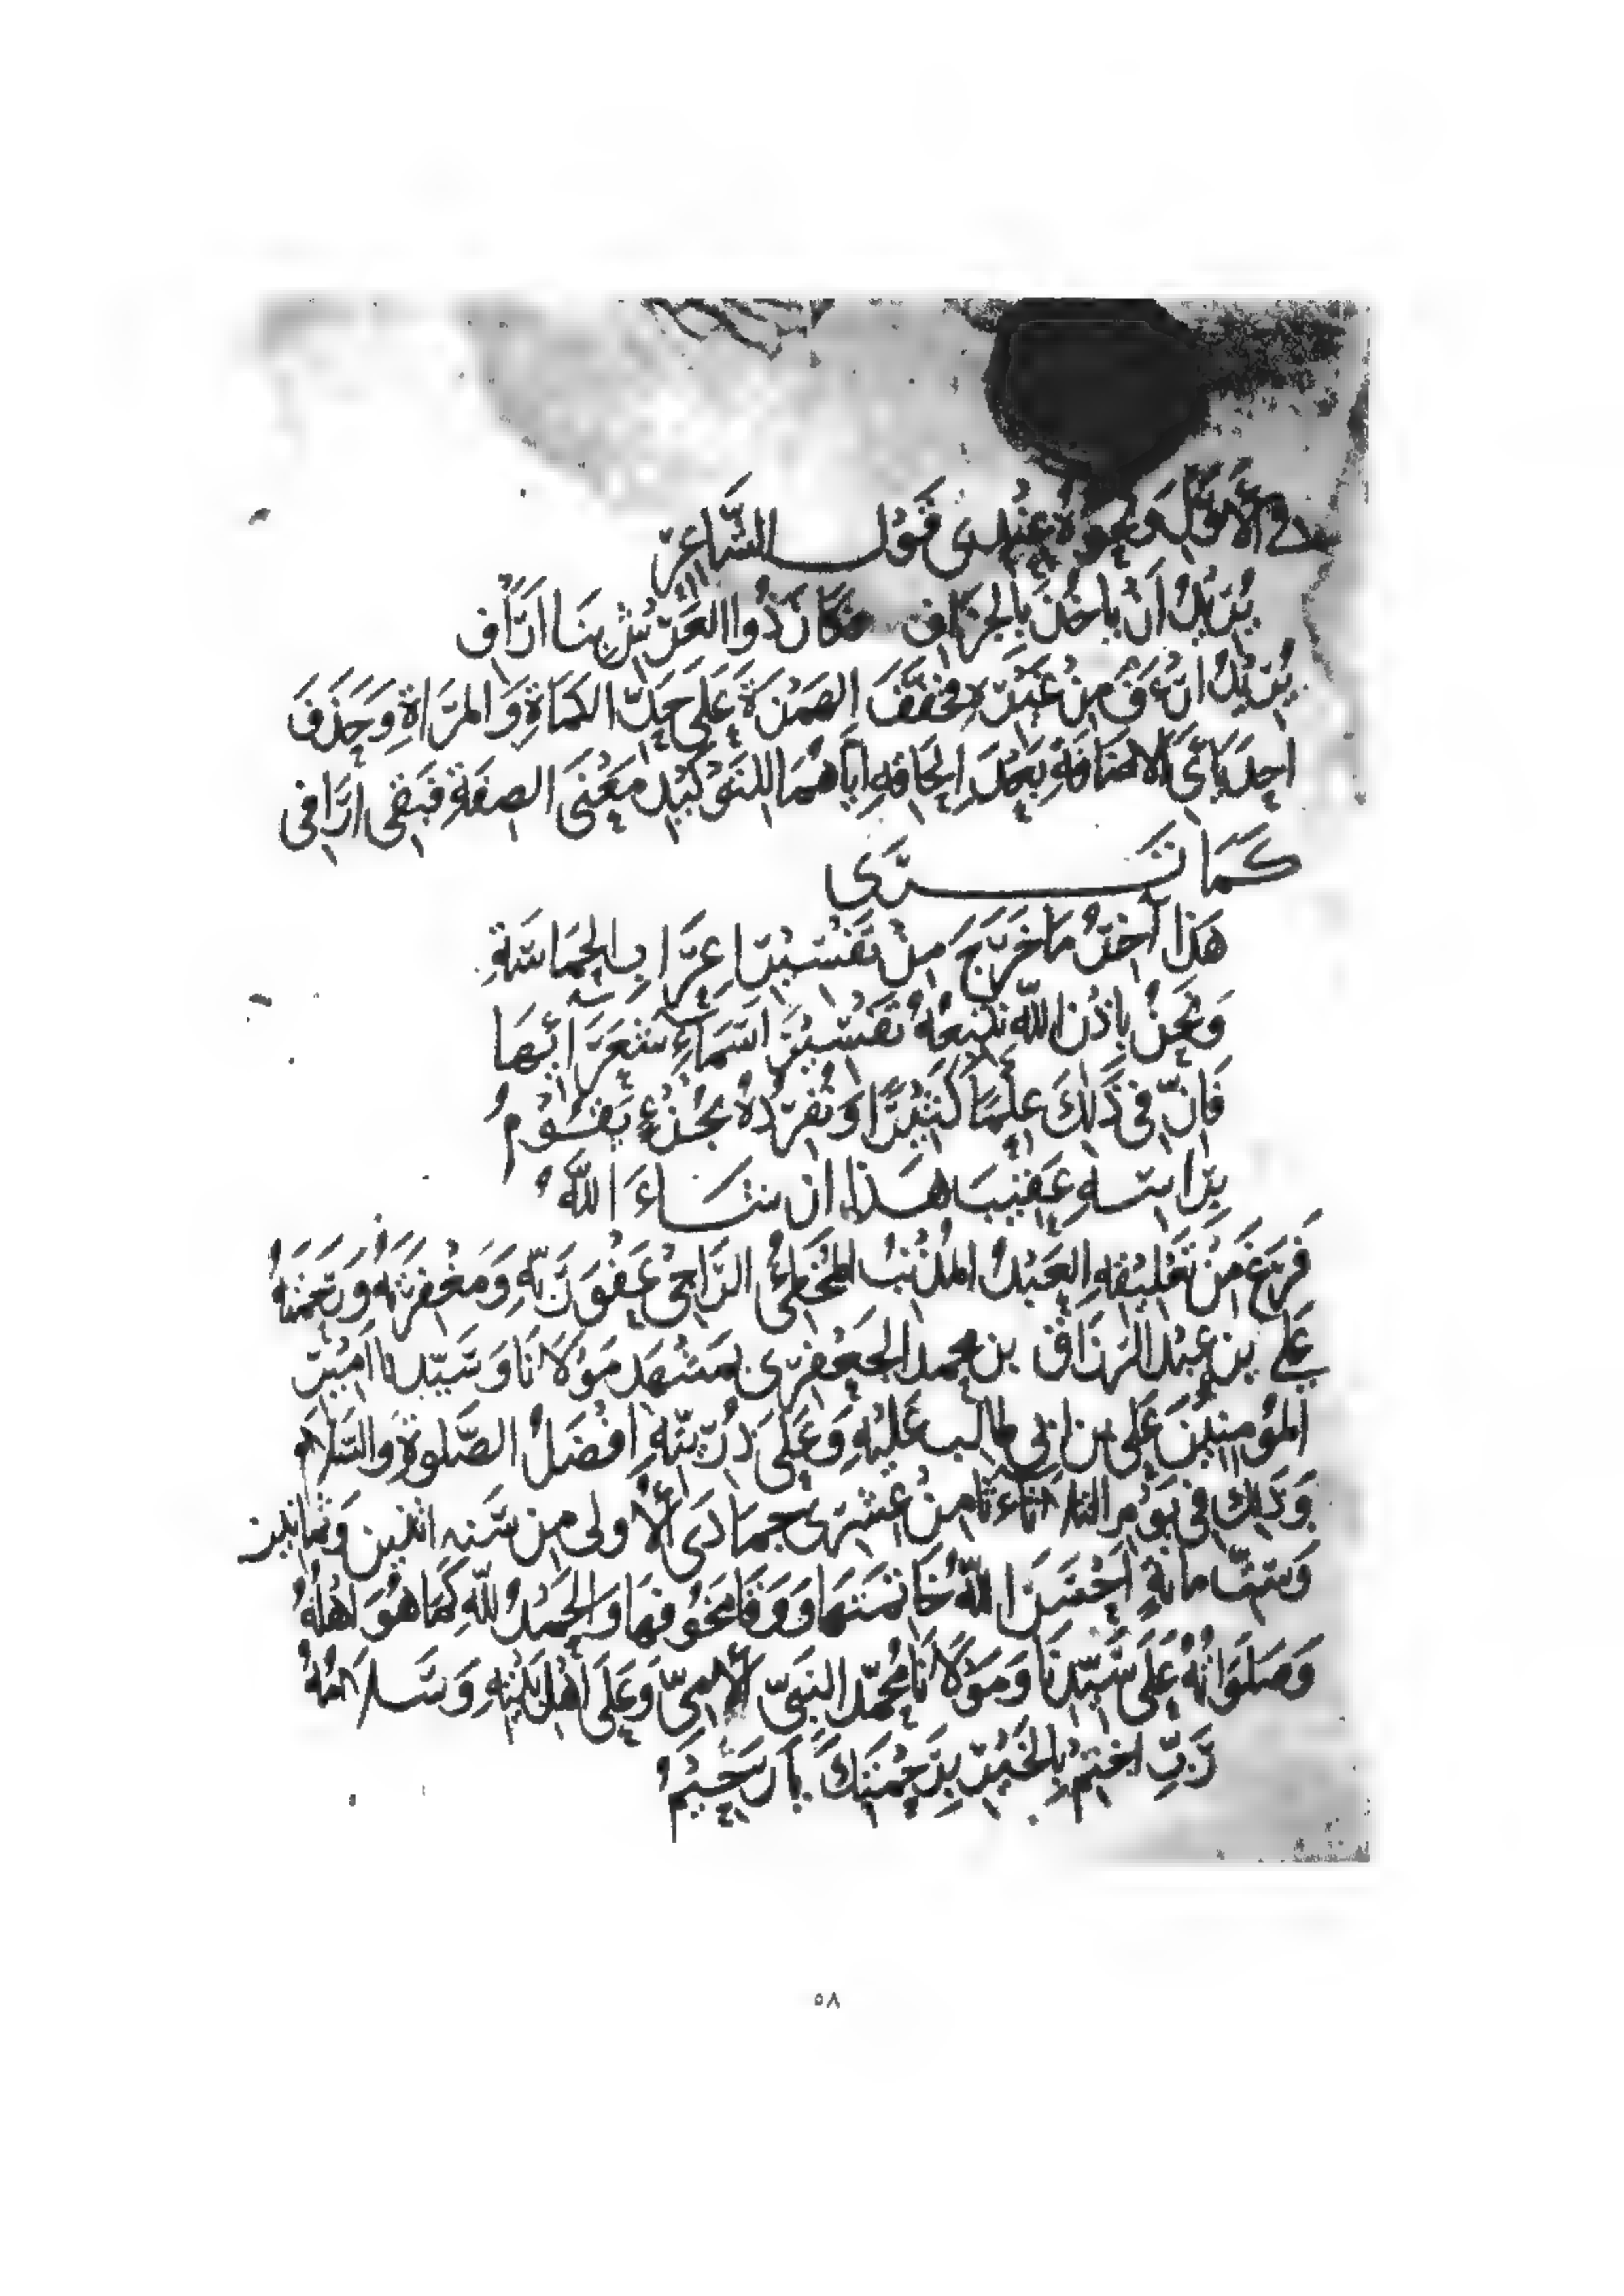 الأوّلِ ونحوهُ عِندي قَول الشّاعِر
يُرِيدُ أنْ ياخُذَ بِالجِزافِ وكَانَ ذُوا العَرْشِ بِنَا أَرَّافِ
يُرِيدُ أَرْءَفَ مِنْ غَيْرِهِ فخفَّفَ الهَمْزَةَ عَلَى حَدِّ الكَمَاةِ وَالمَرَاةِ وَحَذَفَ
احِدَ يَاءَيِ الاضَافَةِ بَعْدَ اِلحَاقِهِ ايَاهُمَا للتَوْكيْدِ مَعْنَى الصِفَةِ فبَقِى ارَافِى
كَمَا تَرَى
هَذا آخِرُ مَا خَرَجَ مِنْ تَفْسِيْرِ اِعِرَابِ الحِمَاسَةِ
وَنَحْنُ بِاذْنِ اللّهِ نُتْبِعُهُ تَفْسِيْرَ اسْمَآءِ شُعَرَآئِهَا
فَانّ فى ذَلِكَ عِلْمًا كَثِيْرًا وَنُفْرِدُهُ بجُزْءٍ يَقُوْمُ
بِرَاسِهِ عَقِيْبَ هَذَا ان شَاءَ اللّهُ
فَرَغَ مِنْ تَعْلِيقِهِ العَبْدُ المُذْنِبُ المُخْطِئُ الرَّاجِىْ عَفْوَ رَبِّهِ وَمَغْفِرَتَهُ وَرَحْمَتَهُ
عَلِي بن عَبْد الرَّزَاق بن محمد الجَعْفَرِى بمَشْهَدِ مَوْلَانَا وَسَيّدِنا امِيْرِ
المُؤمِنِيْنَ عَلى بن ابى طالب عَلَيْهِ وَعَلَى ذُرِّيّتِهِ افْضَلُ الصَّلوةِ وَالسَّلَام
وَذَلِكَ فى يَوْم الثلاثاءِ ثامِن عَشْرِى جمَادَى الأولى مِن سَنه اثنين وَثمانين
وَستّ مائةٍ احْسَنَ اللّهُ خَاتمَتَهَا وَوَقَا مَخُوفهَا وَالحَمْدُ للّهِ كَمَا هُوَ اهْلُهُ
وَصَلَوَاتُهُ عَلَى سَيّدِنَا وَمَوْلَانَا مُحَمّدٍ النَبىّ الأمّىِّ وَعَلَى اهْلِ بَيْتِهِ وَسَلَامُهُ
رَبِّ اخْتِمْ بِالخَيْرِ بِرَحْمَتِكَ يَا رَحِيْمُ
٥٨